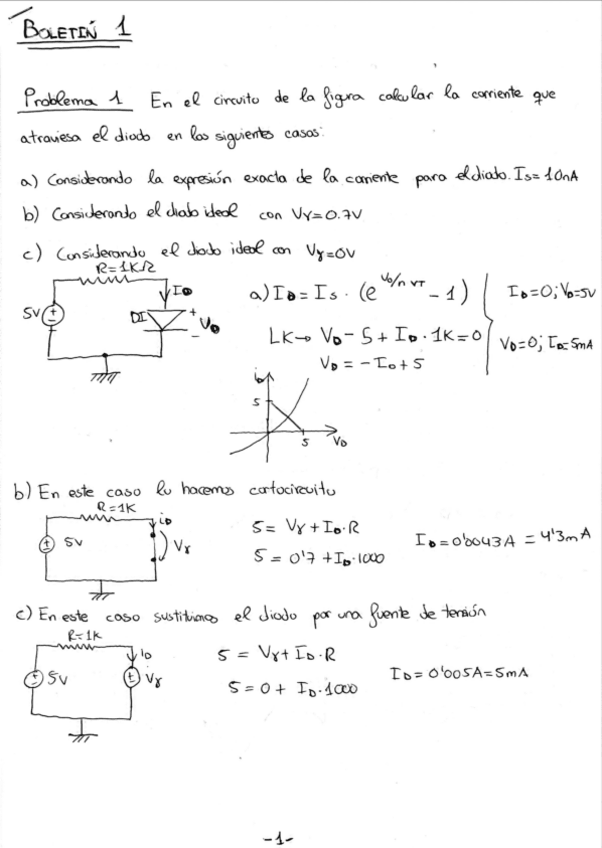 BOLETÍN 1
Problema 1 En el circuito de la figura calcular la corriente que
atraviesa el diodo en los siguientes casos:
a) Considerando la expresión exacta de la corriente para el diodo. Is=10nA
b) Considerando el diodo ideal con Vγ=0.7V
c) Considerando el diodo ideal con Vγ=0V
R=1KΩ
ID
5V
DI
+
VD
-
a) ID = Is · (e^VD/n VT - 1)
LK→ VD - 5 + ID · 1K = 0
VD = -ID + 5
ID=0; VD=5V
VD=0; ID=5mA
iD
5
5
VD
b) En este caso lo hacemos cortocircuito
R=1K
iD
5V
Vγ
5 = Vγ + ID·R
5 = 0'7 + ID·1000
ID = 0'0043A = 4'3mA
c) En este caso sustituimos el diodo por una fuente de tensión
R=1K
iD
5V
Vγ
5 = Vγ + ID·R
5 = 0 + ID·1000
ID = 0'005A = 5mA
-1-